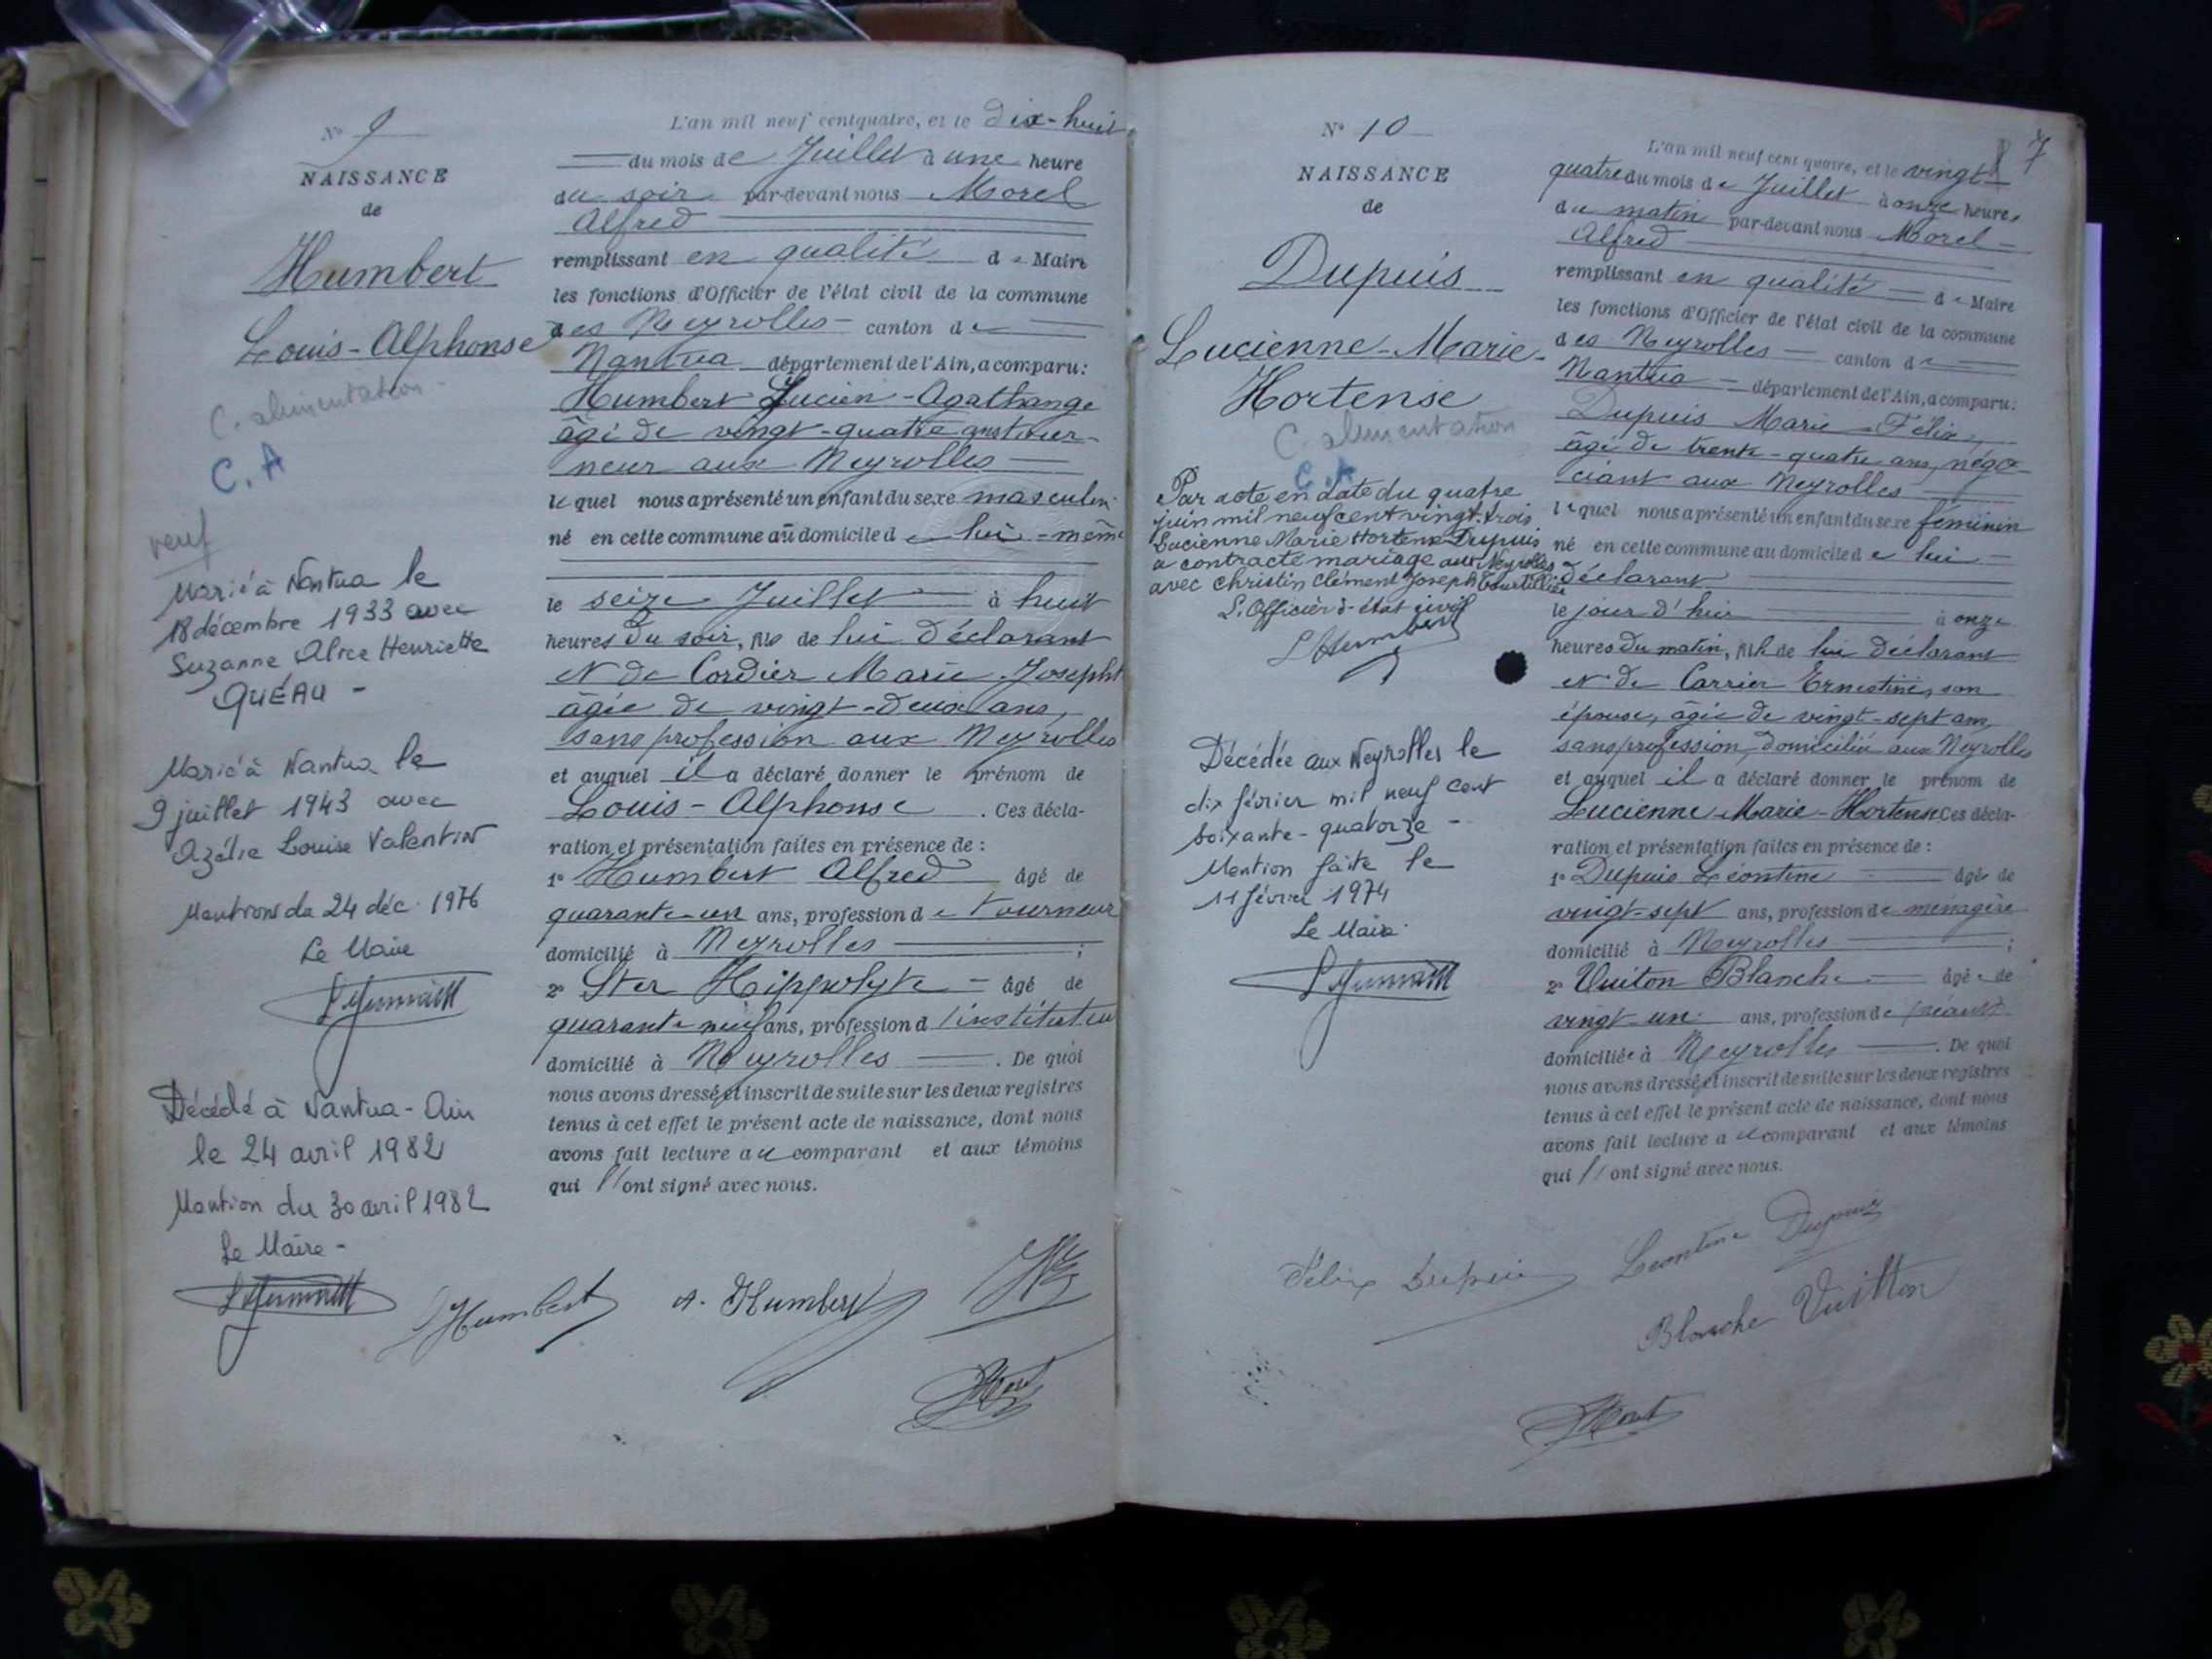 N° 9
NAISSANCE
de
Humbert
Louis-Alphonse
C. alimentation
C. A
veuf
Marié à Nantua le
18 décembre 1933 avec
Suzanne Alice Henriette
QUÉAU -
Marié à Nantua le
9 juillet 1943 avec
Azélie Louise Valentin
Mentions du 24 déc. 1976
Le Maire
Décédé à Nantua - Ain
le 24 avril 1982
Mention du 30 avril 1982
Le Maire -
L'an mil neuf cent quatre, et le dix-huit
du mois de Juillet à une heure
du soir par-devant nous Morel
Alfred
remplissant en qualité de Maire
les fonctions d'Officier de l'état civil de la commune
des Neyrolles canton de
Nantua département de l'Ain, a comparu:
Humbert Lucien-Agathange
âgé de vingt-quatre ans tour-
neur aux Neyrolles
lequel nous a présenté un enfant du sexe masculin
né en cette commune au domicile de lui-même
le seize Juillet à huit
heures du soir, fils de lui déclarant
et de Cordier Marie Josephte
âgée de vingt-deux ans,
sans profession aux Neyrolles
et auquel il a déclaré donner le prénom de
Louis-Alphonse . Ces décla-
ration et présentation faites en présence de :
1° Humbert Alfred âgé de
quarante-un ans, profession de tourneur
domicilié à Neyrolles ;
2° Ster Hippolyte - âgé de
quarante neuf ans, profession d'instituteur
domicilié à Neyrolles . De quoi
nous avons dressé et inscrit de suite sur les deux registres
tenus à cet effet le présent acte de naissance, dont nous
avons fait lecture au comparant et aux témoins
qui l'ont signé avec nous.
Humbert A. Humbert
7
N° 10
NAISSANCE
de
Dupuis
Lucienne-Marie-
Hortense
C. alimentation
C. A
Par acte en date du quatre
juin mil neuf cent vingt-trois
Lucienne Marie Hortense Dupuis
a contracté mariage aux Neyrolles
avec Christin Clément Joseph Tourtillier
L'Officier d'état civil
L Humbert
Décédée aux Neyrolles le
dix février mil neuf cent
soixante-quatorze -
Mention faite le
11 février 1974
Le Maire.
L'an mil neuf cent quatre, et le vingt-
quatre du mois de Juillet à onze heures
du matin par-devant nous Morel
Alfred
remplissant en qualité de Maire
les fonctions d'Officier de l'état civil de la commune
des Neyrolles canton de
Nantua département de l'Ain, a comparu:
Dupuis Marie-Félix,
âgé de trente-quatre ans, négo-
ciant aux Neyrolles
lequel nous a présenté un enfant du sexe féminin
né en cette commune au domicile de lui
déclarant
le jour d'hui à onze
heures du matin, fille de lui déclarant
et de Carrier Ernestine, son
épouse, âgée de vingt-sept ans,
sans profession, domiciliée aux Neyrolles
et auquel il a déclaré donner le prénom de
Lucienne-Marie-Hortense Ces décla-
ration et présentation faites en présence de :
1° Dupuis Léontine âgée de
vingt-sept ans, profession de ménagère
domicilié à Neyrolles ;
2° Vuiton Blanche âgée de
vingt-un ans, profession de néant
domiciliée à Neyrolles . De quoi
nous avons dressé et inscrit de suite sur les deux registres
tenus à cet effet le présent acte de naissance, dont nous
avons fait lecture au comparant et aux témoins
qui l'ont signé avec nous.
Félix Dupuis Léontine Dupuis
Blanche Vuitton